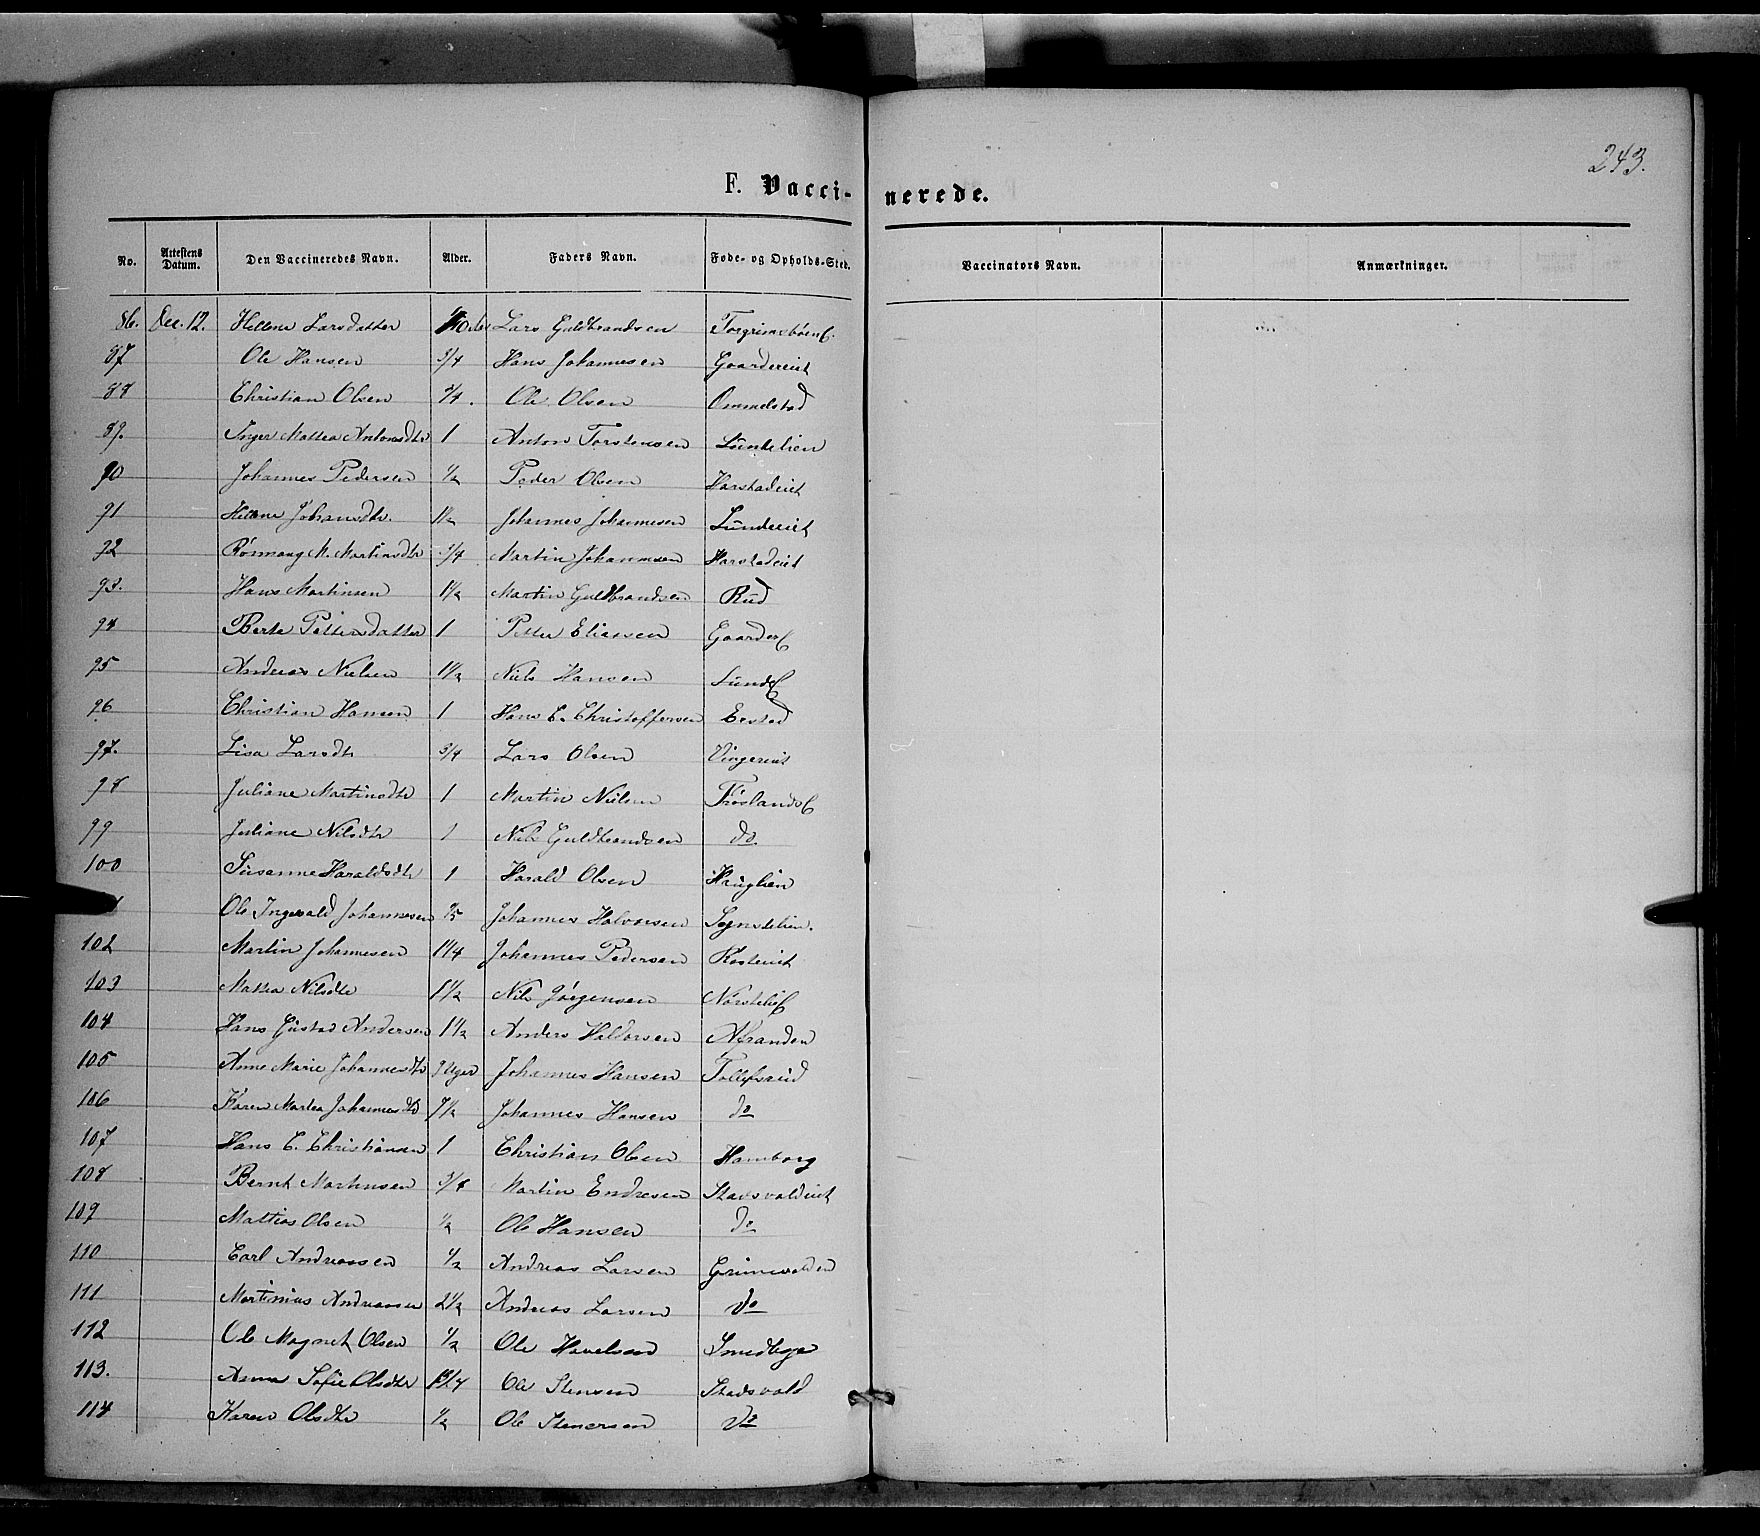 243.
F. Vaccinerede.
No. Attestens Datum. Den Vaccineredes Navn. Alder. Faders Navn. Føde- og Opholds-Sted. Vaccinators Navn. Anmærkninger.
86. Dec. 12. Hellene Larsdatter Lars Guldbrandsen Torgrimsbøen
87 Ole Hansen 3/4 Hans Johannesen Gaardereiet
88 Christian Olsen 3/4. Ole Olsen Ommelstad
89. Inger Mattea Antonsdtr 1 Anton Torstensen Lundelien
90 Johannes Pedersen 1/2 Peder Olsen Harstadeiet
91 Hellene Johansdtr. 1 1/2 Johannes Johannesen Lundeeiet
92 M. Martinsdtr 3/4 Martin Johannesen Harstadeiet
93. Hans Martinsen 1 1/2 Martin Guldbrandsen Rud
94 Berte Pettersdatter 1 Petter Eliassen Gaarder
95 Andreas Nielsen 1 1/2 Niels Hansen Lund
96 Christian Hansen 1 Hans C. Christoffersen Erstad
97. Lisa Larsdtr 3/4 Lars Olsen Vingereiet
98 Juliane Martinsdtr 1 Martin Nielsen Frøsland
99 Juliane Nilsdtr 1 Nils Guldbrandsen do
100 Susanne Haraldsdtr 1 Harald Olsen Hauglien
Ole Ingevald Johannesen Johannes Halvorsen Sognstelien.
102 Martin Johannesen 1 1/4 Johannes Pedersen
103 Mattea Nilsdtr 1 1/2 Nils Jørgensen
104 Hans Gustav Andersen 1 1/2 Anders Haldorsen
105 Anne Marie Johannesdtr 9 Uger Johannes Hansen Tollefsrud
106 Karen Martea Johannesdtr 7 1/2 Johannes Hansen do
107 Hans C. Christiansen 1 Christian Olsen Hamborg
108 Bernt Martinsen 3/4 Martin Endresen Stadsvoldeiet
109 Mattias Olsen 1/2 Ole Hansen do
110 Carl Andreassen 1/2 Andreas Larsen Grimsvolden
111 Martinius Andreassen 2 1/2 Andreas Larsen do
112 Ole Magnet Olsen 1/2 Ole Havelsen
113. Anna Sofie Olsdtr Ole Stensen Stadsvold
114 Karen Olsdtr 1/2 Ole Stenersen do